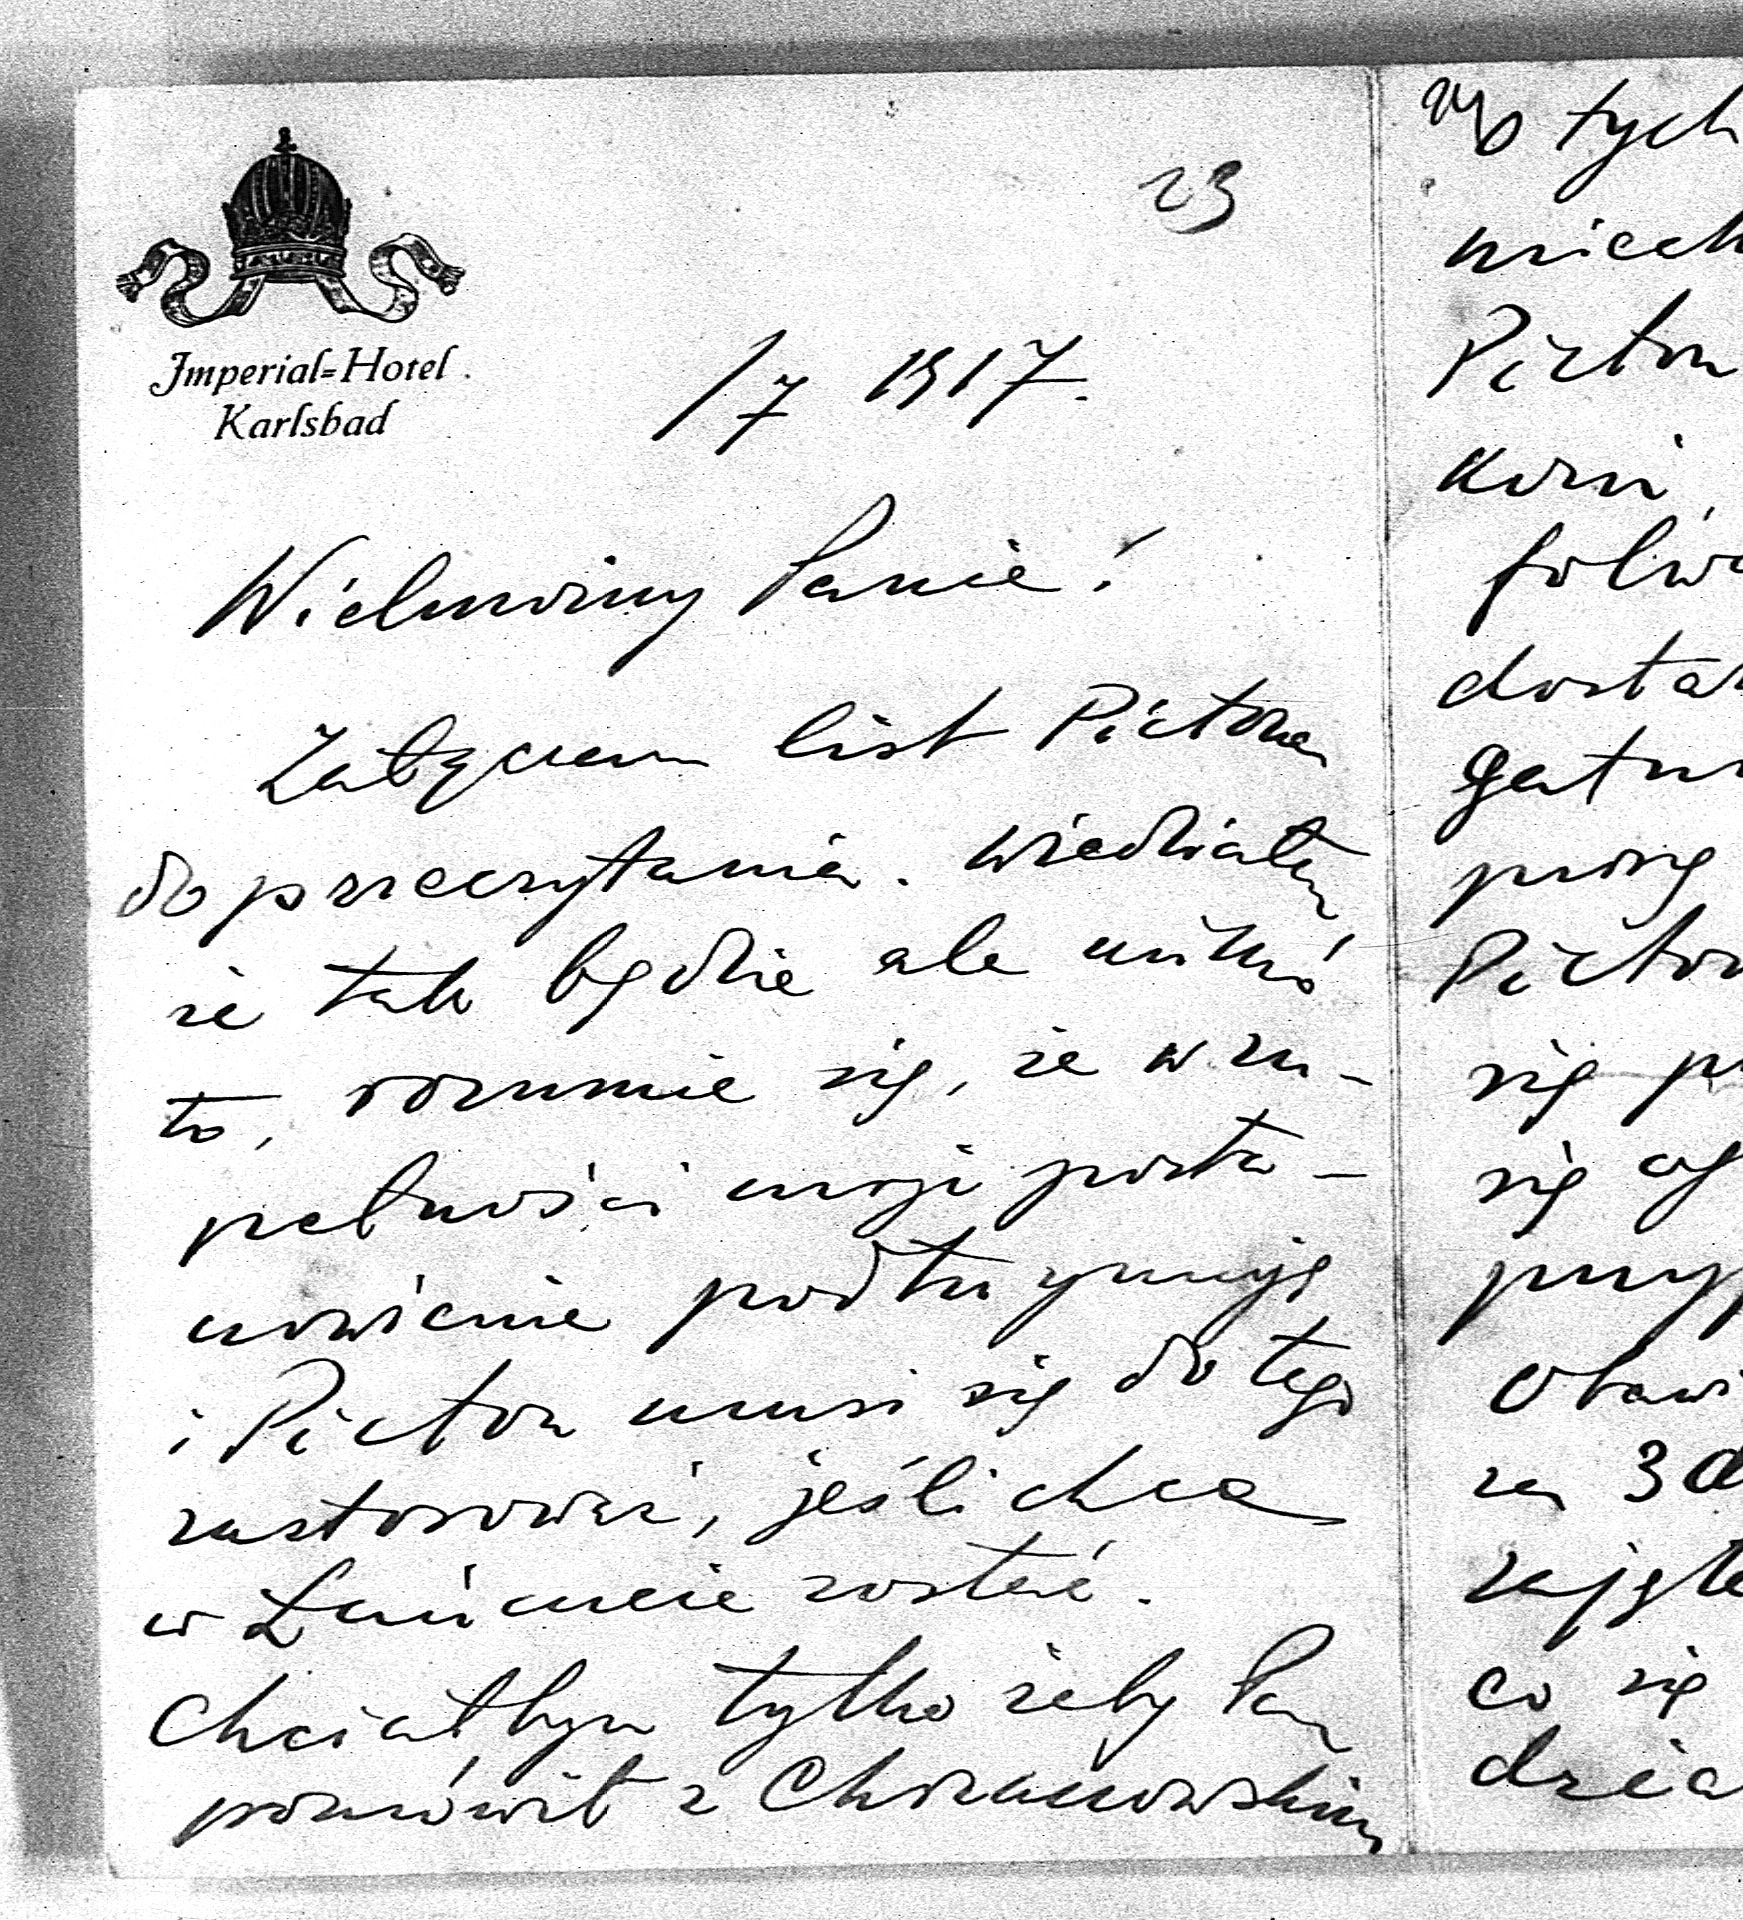 23
Imperial=Hotel
Karlsbad
/7 1917.
Wielmożny Panie!
Załączam list Pictona
do przeczytania. Wiedziałem
że tak będzie ale mimo
to, rozumie się, że w zu-
pełności moje posta-
nowienie podtrzymuję
i Picton musi się do tego
zastosować, jeśli chce
w Łańcucie zostać.
Chciałbym tylko żeby Pan
pomówił z Chrzanowskim
tych
Picton
koni,
folwa
dosta
gatun
proszę
Picton
się
się
przyp
Obawi
za 3
zajęte
co się